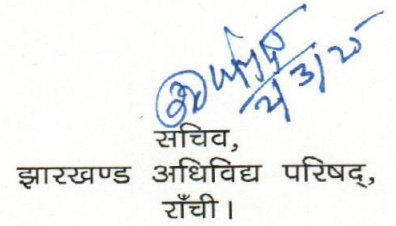 सचिव,
झारखण्ड अधिविद्य परिषद्,
राँची।